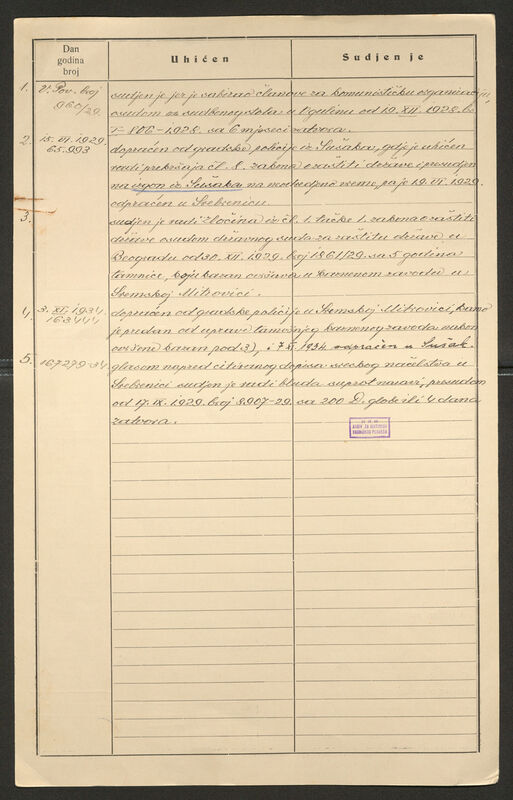 Dan
godina
broj
Uhićen
Sudjenje
1. V. Pov. broj
960/29
sudjen je jer je sabirao članove za komunističku organizaciju,
osudom sudbenog stola u Ogulinu od 19. XII. 1928. br.
806-1928. sa 6 mjeseci zatvora.
2. 15. VI. 1929.
65.993
dopraćen od gradske policije iz Sušaka, gdje je uhićen
radi prekršaja čl. 8. zakona o zaštiti države i presudjen
na izgon iz Sušaka na vrijeme, pa je 19. VI. 1929.
odpraćen u Srebrenicu.
3.
sudjen je radi zločina iz čl. 1. tačke 1. zakona o zaštiti
države osudom državnog suda za zaštitu države u
Beogradu od 30. XII. 1929. broj 1861/29. sa 5 godina
tamnice, koju kazan u kaznenom zavodu u
Sremskoj Mitrovici.
4. 3. XI. 1934.
163444
dopraćen od gradske policije u Sremskoj Mitrovici, kamo
je predan od uprave tamošnjeg kaznenog zavoda nakon
ovršene kazni pod 3), i 7. XI. 1934. odpraćen u Sušak.
5. 167279-34.
glasom napred citiranog dopisa sreskog načelstva u
Srebrenici sudjen je radi bluda suprot naravi, presudom
od 17. IX. 1929. broj 8907-29. sa 200 D. globe ili 4 dana
zatvora.
ARHIV ZA HISTORIJU
RADNIČKOG POKRETA